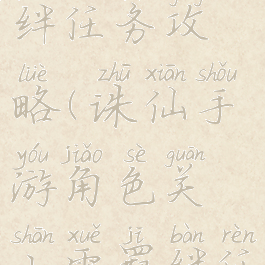 绊任务攻
lüè zhū xiān shǒu
略(诛仙手
yóu jiǎo sè guān
游角色关
shān xuě jī bàn rèn